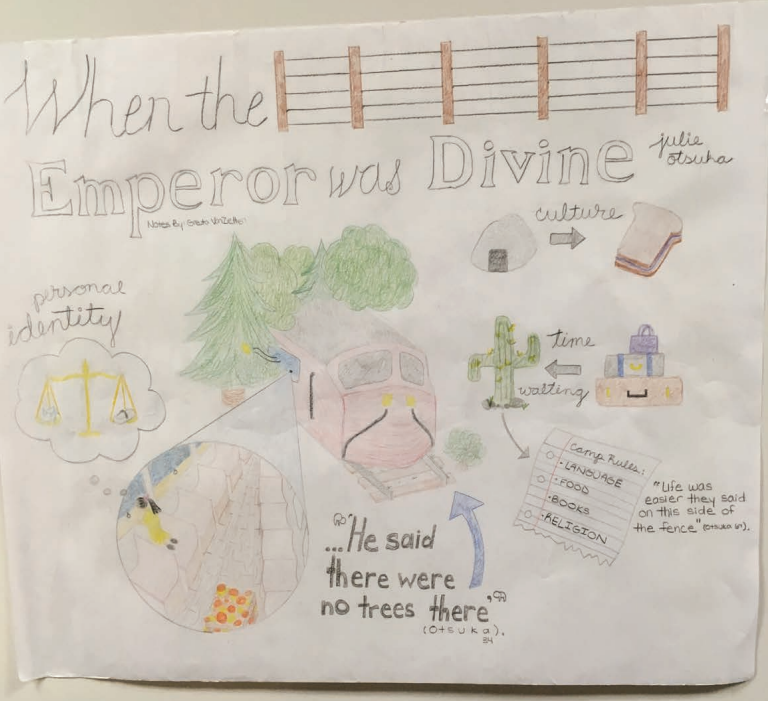 When the
Emperor was Divine
julie
otsuka
Notes By:
culture
personal
identity
time
waiting
Camp Rules:
• LANGUAGE
• FOOD
• BOOKS
• RELIGION
"Life was
easier they said
on this side of
the fence" (Otsuka
"...He said
there were
no trees there"
(Otsuka).
34